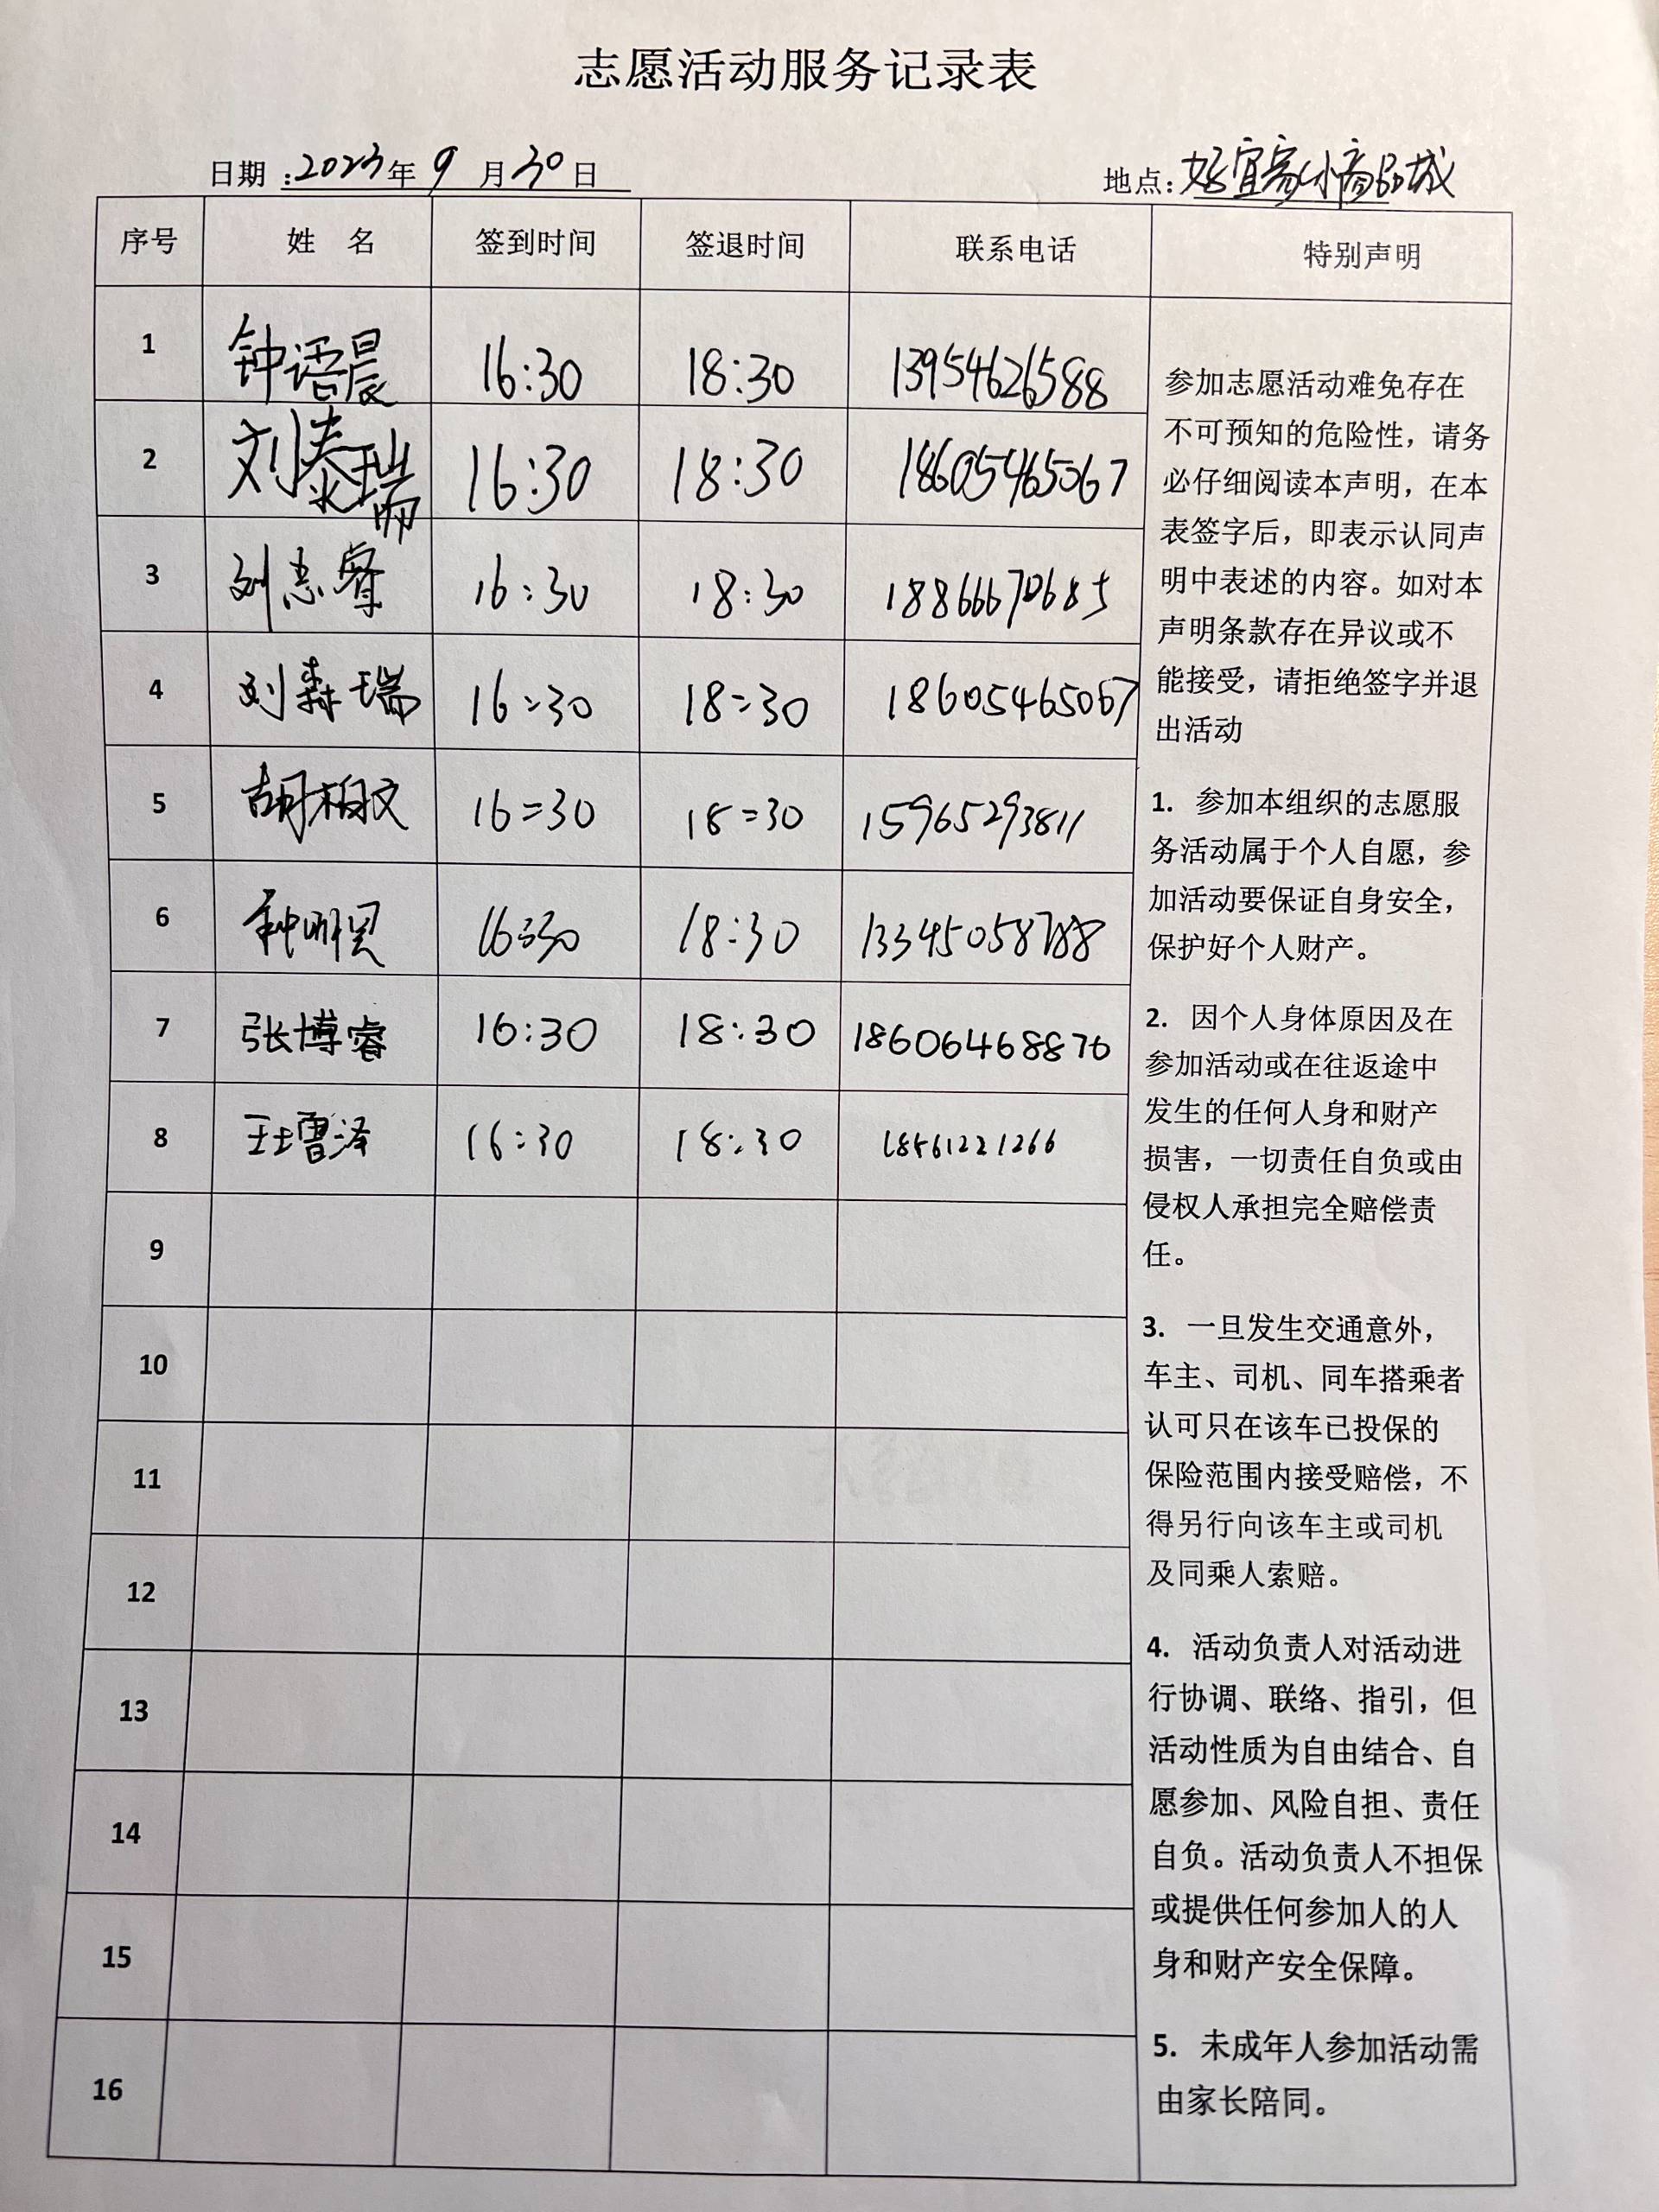 志愿活动服务记录表
日期：2023年9月30日 地点：好宜家小商品城
序号 姓 名 签到时间 签退时间 联系电话 特别声明
1 钟语晨 16:30 18:30 13954626588
2 刘泰瑞 16:30 18:30 18605465067
3 刘志睿 16:30 18:30 18866670685
4 刘森瑞 16:30 18:30 18605465067
5 胡柏文 16:30 18:30 15965293811
6 16:30 18:30 13345058788
7 张博睿 16:30 18:30 18606468876
8 王增泽 16:30 18:30 18561221266
9
10
11
12
13
14
15
16
参加志愿活动难免存在
不可预知的危险性，请务
必仔细阅读本声明，在本
表签字后，即表示认同声
明中表述的内容。如对本
声明条款存在异议或不
能接受，请拒绝签字并退
出活动
1. 参加本组织的志愿服
务活动属于个人自愿，参
加活动要保证自身安全，
保护好个人财产。
2. 因个人身体原因及在
参加活动或在往返途中
发生的任何人身和财产
损害，一切责任自负或由
侵权人承担完全赔偿责
任。
3. 一旦发生交通意外，
车主、司机、同车搭乘者
认可只在该车已投保的
保险范围内接受赔偿，不
得另行向该车主或司机
及同乘人索赔。
4. 活动负责人对活动进
行协调、联络、指引，但
活动性质为自由结合、自
愿参加、风险自担、责任
自负。活动负责人不担保
或提供任何参加人的人
身和财产安全保障。
5. 未成年人参加活动需
由家长陪同。